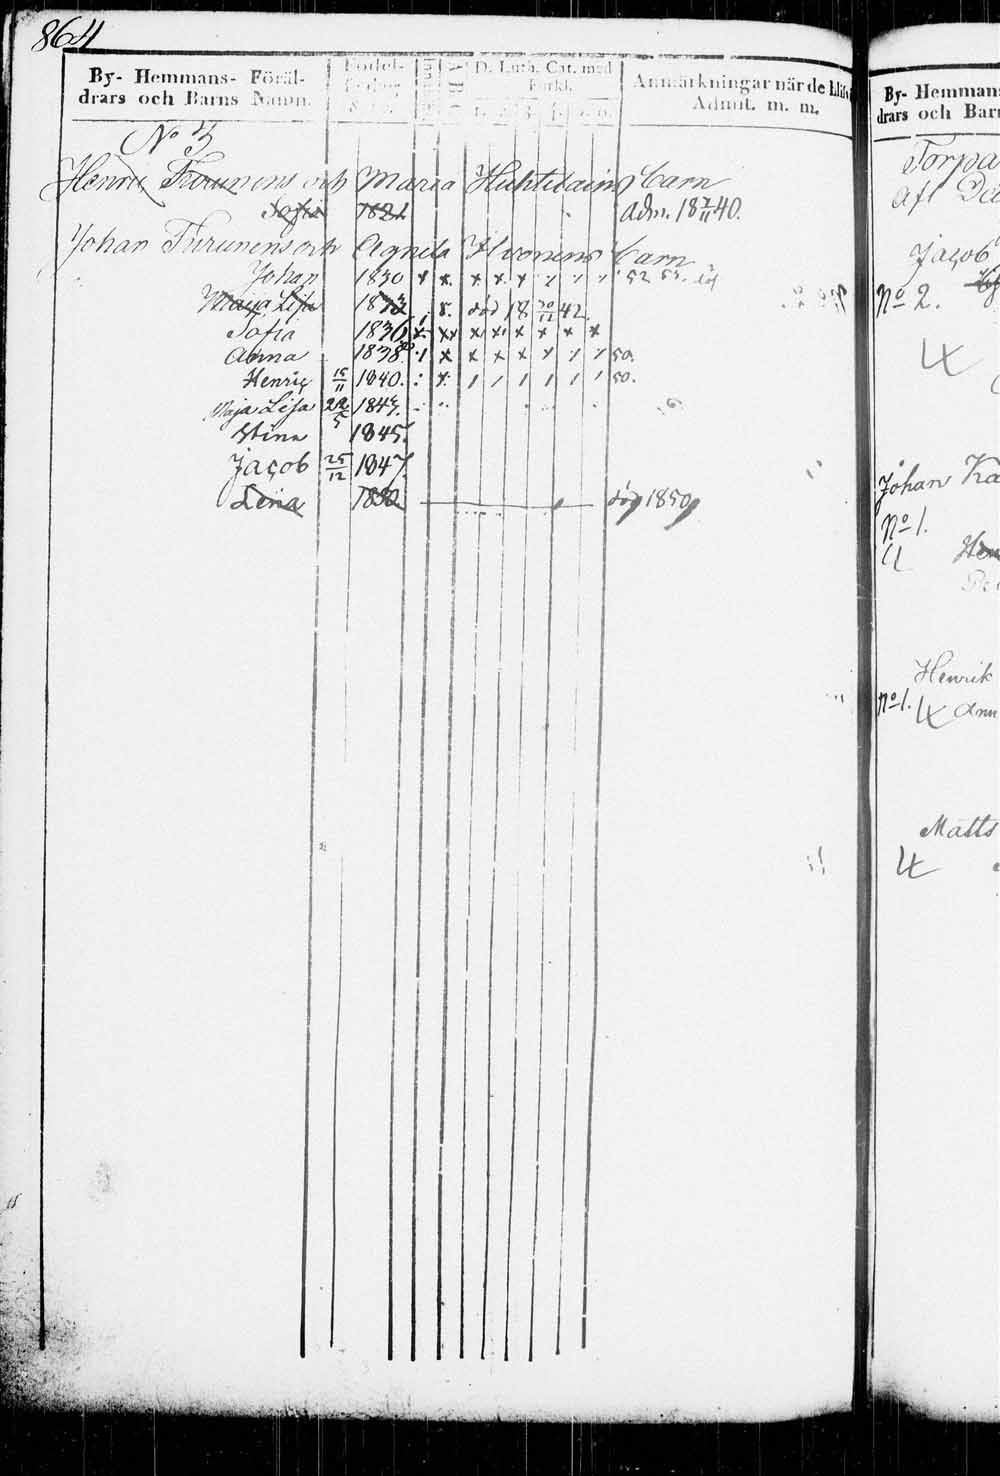 864
By- Hemmans- Föräl-
drars och Barns Namn.
Födel-
A B C
D. Luth. Cat. med
Anmärkningar när de blifvi
Admit. m. m.
No 3
Henric Turunens och Maria Huhtilains barn
Sofia 1821 adm. 18 7/11 40.
Johan Turunens och Agneta Hvonens barn
Johan 1830 x x x x x 52 53.
Maja Lisa 18 död 18 30/11 42.
Sofia 1836 x xx x x x x x x
Anna 1838 x x x x 50.
Henric 15/11 1840. 50.
Maja Lisa 22/5 1843.
Stina 1845.
Jacob 25/12 1847
Lena 1850 död 1850
By- Hemmans
drars och Bar
Torpa
Jacob
No 2.
Johan
No 1.
Henrik
No 1.
Matts